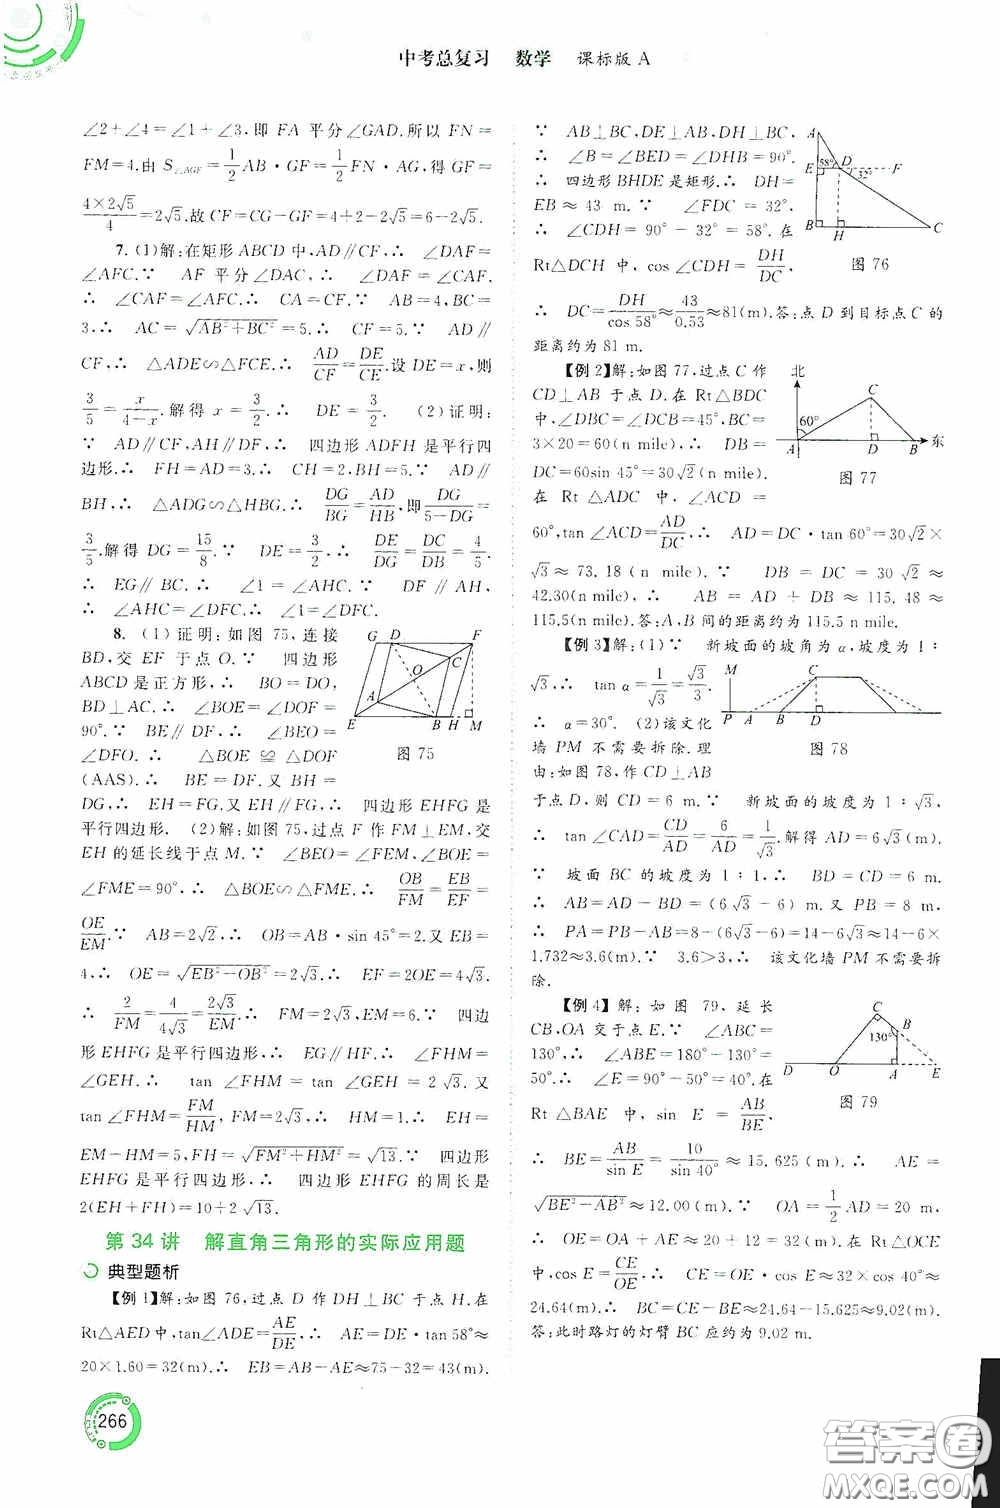 中考总复习 数学 课标版 A
∠2+∠4=∠1+∠3,即 FA 平分∠GAD.所以 FN=
FM=4.由 S△AGF=1/2 AB·GF=1/2 FN·AG,得 GF=
4×2√5/4=2√5.故 CF=CG-GF=4+2-2√5=6-2√5.
7.(1)解:在矩形 ABCD 中,AD∥CF,∴ ∠DAF=
∠AFC.∵ AF 平分∠DAC,∴ ∠DAF=∠CAF.
∴ ∠CAF=∠AFC.∴ CA=CF.∵ AB=4,BC=
3,∴ AC=√(AB²+BC²)=5.∴ CF=5.∵ AD∥
CF,∴ △ADE∽△FCE.∴ AD/CF=DE/CE.设 DE=x,则
3/5=x/(4-x).解得 x=3/2.∴ DE=3/2. (2)证明:
∵ AD∥CF,AH∥DF,∴ 四边形 ADFH 是平行四
边形.∴ FH=AD=3.∴ CH=2.∴ BH=5.∵ AD∥
BH,∴ △ADG∽△HBG.∴ DG/BG=AD/HB,即DG/(5-DG)=
3/5.解得 DG=15/8.∵ DE=3/2,∴ DE/DG=DC/DB=4/5.
∴ EG∥BC.∴ ∠1=∠AHC.∵ DF∥AH,
∴ ∠AHC=∠DFC.∴ ∠1=∠DFC.
8. (1)证明:如图 75,连接
BD,交 EF 于点 O.∵ 四边形
ABCD 是正方形,∴ BO=DO,
BD⊥AC.∴ ∠BOE=∠DOF=
90°.∵ BE∥DF,∴ ∠BEO=
∠DFO.∴ △BOE≌△DOF
(AAS).∴ BE=DF.又 BH=
G D F C O A E B H M
图 75
DG,∴ EH=FG.又 EH∥FG,∴ 四边形EHFG 是
平行四边形. (2)解:如图 75,过点 F 作 FM⊥EM,交
EH 的延长线于点 M.∵ ∠BEO=∠FEM,∠BOE=
∠FME=90°,∴ △BOE∽△FME.∴ OB/FM=EB/EF=
OE/EM.∵ AB=2√2,∴ OB=AB·sin 45°=2.又 EB=
4,∴ OE=√(EB²-OB²)=2√3.∴ EF=2OE=4√3.
∴ 2/FM=4/4√3=2√3/EM.∴ FM=2√3,EM=6.∵ 四边
形 EHFG 是平行四边形,∴ EG∥HF.∴ ∠FHM=
∠GEH.∴ tan ∠FHM=tan ∠GEH=2√3.又
tan∠FHM=FM/HM=2√3,∴ HM=1.∴ EH=
EM-HM=5,FH=√(FM²+HM²)=√13.∵ 四边形
EHFG 是平行四边形,∴ 四边形 EHFG 的周长是
2(EH+FH)=10+2√13.
第 34 讲 解直角三角形的实际应用题
典型题析
【例 1】解:如图 76,过点 D 作 DH⊥BC 于点 H.在
Rt△AED 中,tan∠ADE=AE/DE,∴ AE=DE·tan 58°≈
20×1.60=32(m).∴ EB=AB-AE≈75-32=43(m).
266
∵ AB⊥BC,DE⊥AB,DH⊥BC,
∴ ∠B=∠BED=∠DHB=90°.
∴ 四边形 BHDE 是矩形.∴ DH=
EB≈43 m.∵ ∠FDC=32°,
∴ ∠CDH=90°-32°=58°.在
Rt△DCH 中,cos ∠CDH=DH/DC,
A E 58° D F 32° B H C
图 76
∴ DC=DH/cos 58°≈43/0.53≈81(m).答:点 D 到目标点 C 的
距离约为 81 m.
【例 2】解:如图 77,过点 C 作
CD⊥AB 于点 D.在 Rt△BDC
中,∠DBC=∠DCB=45°,BC=
3×20=60(n mile),∴ DB=
DC=60sin 45°=30√2(n mile).
在 Rt△ADC 中,∠ACD=
北 60° C A D B 东
图 77
60°,tan ∠ACD=AD/DC,∴ AD=DC·tan 60°=30√2×
√3≈73.18(n mile).∵ DB=DC=30√2≈
42.30(n mile),∴ AB=AD+DB≈115.48≈
115.5(n mile).答:A,B 间的距离约为 115.5 n mile.
【例 3】解:(1)∵ 新坡面的坡角为 α,坡度为 1∶
√3,∴ tan α=1/√3=√3/3.
∴ α=30°. (2)该文化
墙 PM 不需要拆除.理
由:如图 78,作 CD⊥AB
M C P A B D
图 78
于点 D,则 CD=6.∵ 新坡面的坡度为 1∶√3,
∴ tan ∠CAD=CD/AD=6/AD=1/√3.解得 AD=6√3(m).
∵ 坡面 BC 的坡度为 1∶1,∴ BD=CD=6 m.
∴ AB=AD-BD=(6√3-6)m.又 PB=8 m,
∴ PA=PB-AB=8-(6√3-6)=14-6√3≈14-6×
1.732≈3.6(m).∵ 3.6>3,∴ 该文化墙 PM 不需要拆
除.
【例 4】解:如图 79,延长
CB,OA 交于点 E.∵ ∠ABC=
130°,∴ ∠ABE=180°-130°=
50°.∴ ∠E=90°-50°=40°.在
Rt△BAE 中,sin E=AB/BE,
C B 130° D O A E
图 79
∴ BE=AB/sin E=10/sin 40°≈15.625(m).∴ AE=
√(BE²-AB²)≈12.00(m).∵ OA=1/2 AD=20 m,
∴ OE=OA+AE=20+12=32(m).在 Rt△OCE
中,cos E=CE/OE,∴ CE=OE·cos E=32×cos 40°≈
24.64(m).∴ BC=CE-BE≈24.64-15.625≈9.02(m).
答:此时路灯的灯臂 BC 应约为 9.02 m.
答案圈
MXQE.COM